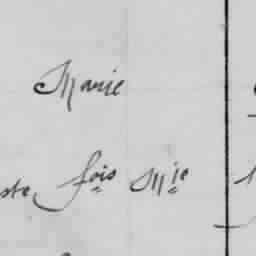 Marie
ste, fois Mie